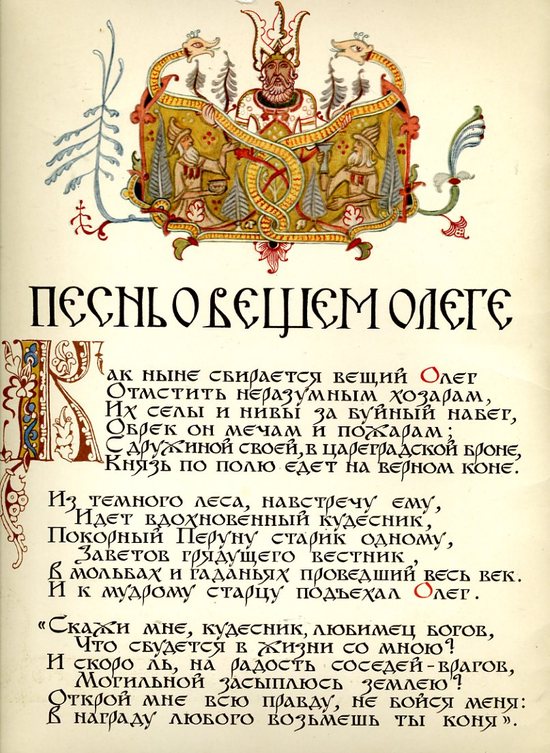 ПЕСНЬ О ВЕЩЕМ ОЛЕГЕ
Как ныне сбирается вещий Олег
Отмстить неразумным хозарам,
Их селы и нивы за буйный набег,
Обрек он мечам и пожарам;
С дружиной своей, в цареградской броне,
Князь по полю едет на верном коне.
Из темного леса, навстречу ему,
Идет вдохновенный кудесник,
Покорный Перуну старик одному,
Заветов грядущего вестник,
В мольбах и гаданьях проведший весь век.
И к мудрому старцу подъехал Олег.
«Скажи мне, кудесник, любимец богов,
Что сбудется в жизни со мною?
И скоро ль, на радость соседей-врагов,
Могильной засыплюсь землею?
Открой мне всю правду, не бойся меня:
В награду любого возьмешь ты коня».